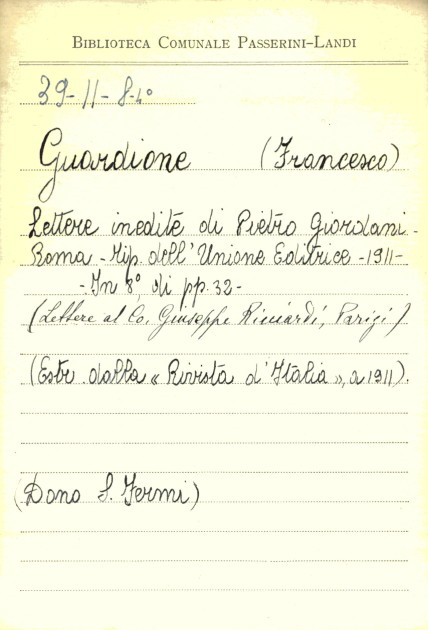 BIBLIOTECA COMUNALE PASSERINI-LANDI
39-11-8-4°
Guardione (Francesco)
Lettere inedite di Pietro Giordani -
Roma - Tip. dell'Unione Editrice - 1911 -
- In 8° di pp. 32 -
(Lettere al Co. Giuseppe Ricciardi, Parigi)
(Estr. dalla « Rivista d'Italia », a 1911).
(Dono S. Fermi)